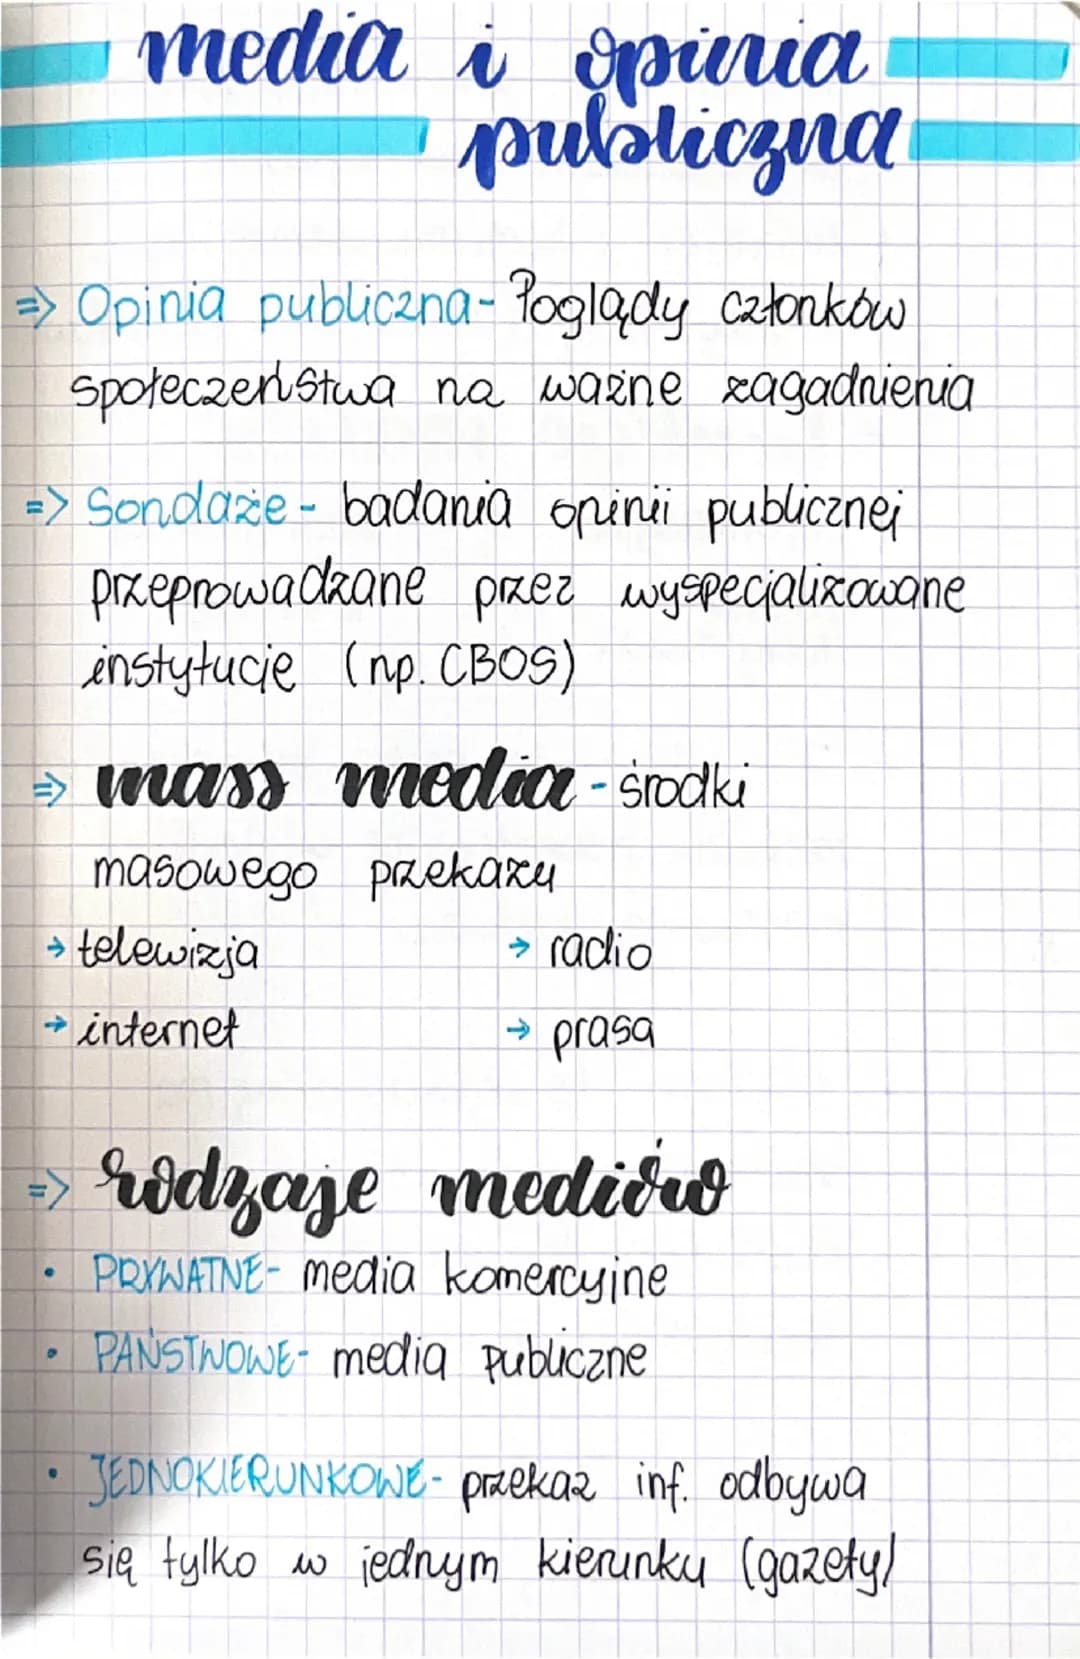 media i opinia
publiczna
=> Opinia publiczna- Poglądy członków
społeczeństwa na ważne zagadnienia
=> Sondaże - badania opinii publicznej
przeprowadzane przez wyspecjalizowane
instytucje (np. CBOS)
=> mass media - środki
masowego przekazu
→ telewizja → radio
→ internet → prasa
=> rodzaje mediów
• PRYWATNE- media komercyjne
• PAŃSTWOWE- media publiczne
• JEDNOKIERUNKOWE- przekaz inf. odbywa
się tylko w jednym kierunku (gazety)